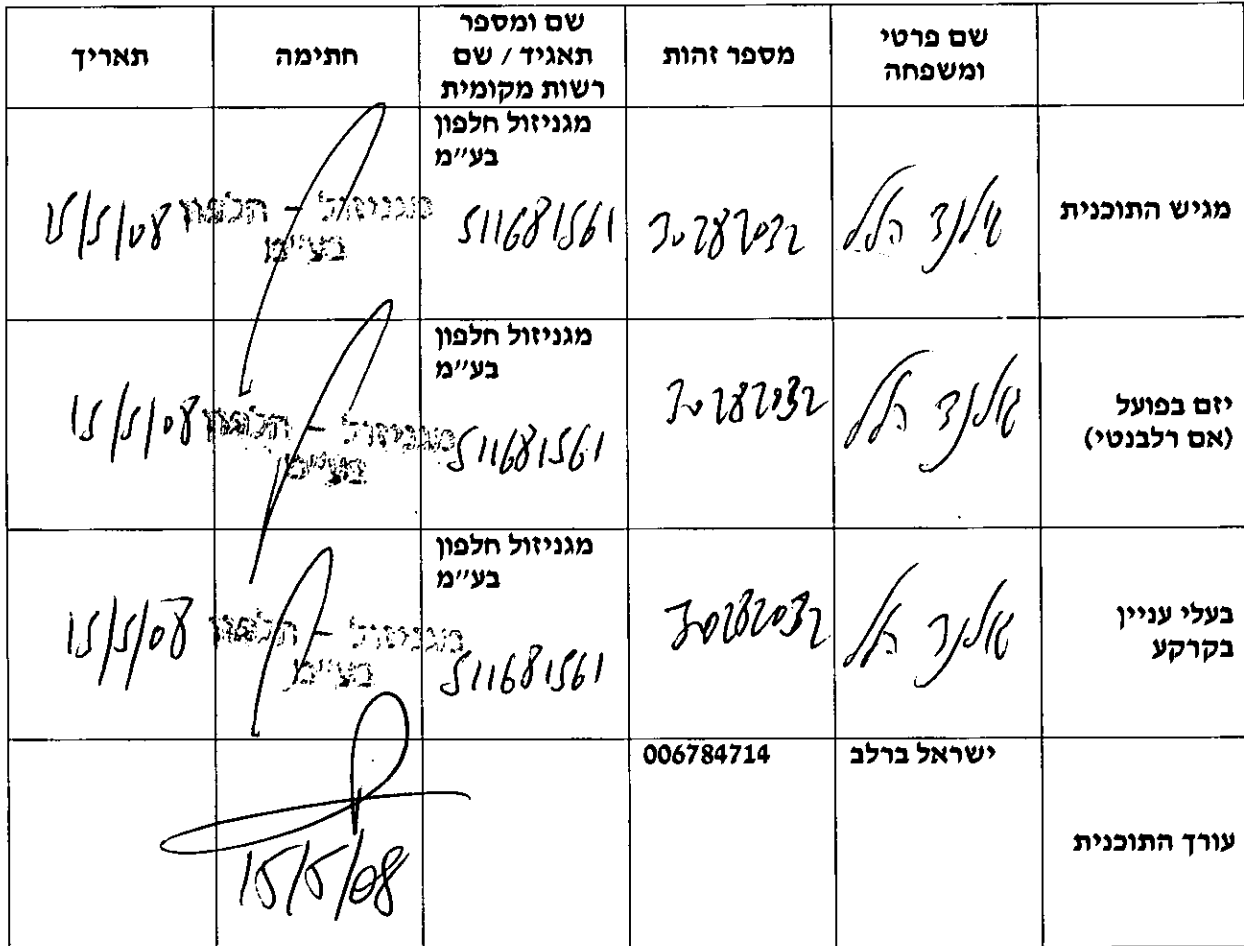 שם פרטי ומשפחה
מספר זהות
שם ומספר תאגיד / שם רשות מקומית
חתימה
תאריך
מגיש התוכנית
מגניזול חלפון
בע״מ
511681561
מגניזול - חלפון
בע״מ
15/5/08
יזם בפועל
(אם רלבנטי)
מגניזול חלפון
בע״מ
511681561
מגניזול - חלפון
בע״מ
15/5/08
בעלי עניין
בקרקע
מגניזול חלפון
בע״מ
511681561
מגניזול - חלפון
בע״מ
15/5/08
עורך התוכנית
ישראל ברלב
006784714
15/5/08